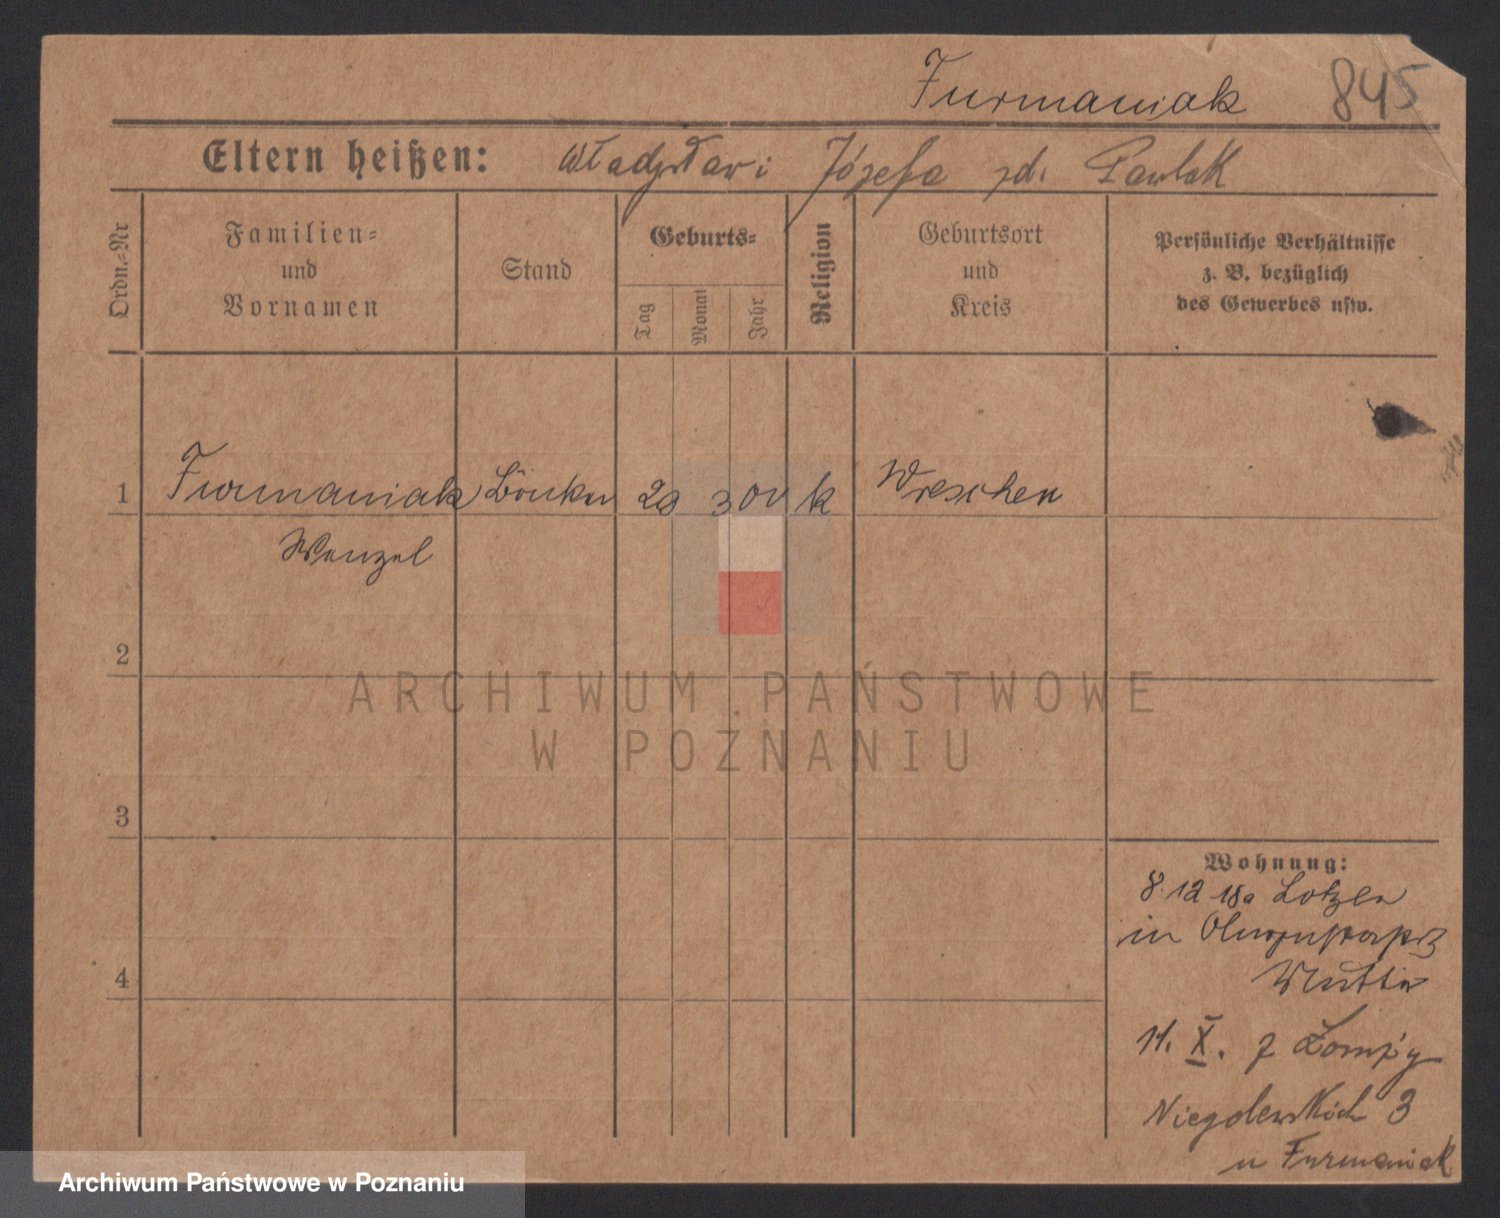 Furmaniak 845
Eltern heißen: Władysław i Józefa zd. Pawlak
Ordn.-Nr
Familien-
und
Vornamen
Stand
Geburts-
Tag
Monat
Jahr
Religion
Geburtsort
und
Kreis
Persönliche Verhältnisse
z. B. bezüglich
des Gewerbes usw.
1 Furmaniak 29 3 00 k Wreschen
Wenzel
2
3
4
Wohnung:
8.12.18 Lotzen
in
Mutter
11. X. z Łomży
Niegolewskich 3
u Furmaniak
ARCHIWUM PAŃSTWOWE
W POZNANIU
Archiwum Państwowe w Poznaniu